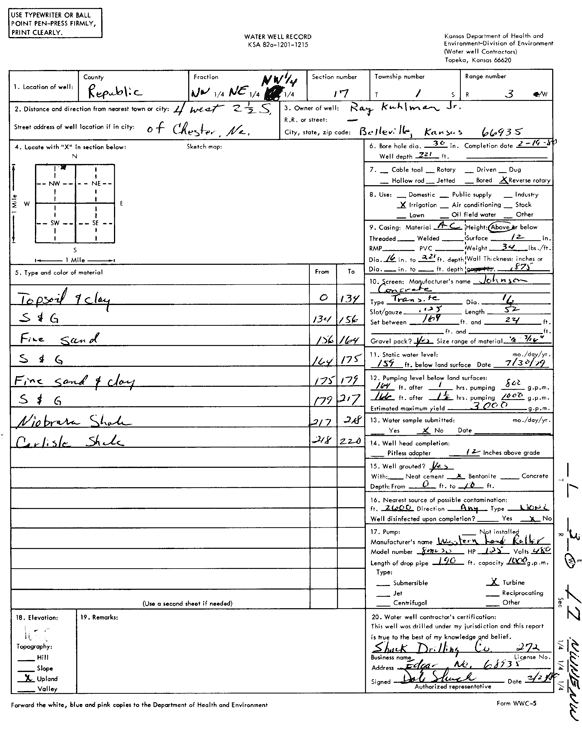 USE TYPEWRITER OR BALL
POINT PEN-PRESS FIRMLY,
PRINT CLEARLY.
WATER WELL RECORD
KSA 82a-1201-1215
Kansas Department of Health and
Environment-Division of Environment
(Water well Contractors)
Topeka, Kansas 66620
1. Location of well:
County
Republic
Fraction
NW 1/4 NE 1/4 NW 1/4
Section number
17
Township number
T 1 S
Range number
R 3 E/W
2. Distance and direction from nearest town or city: 4 west 2½ S.
Street address of well location if in city: of Chester, Ne.
3. Owner of well: Ray Kuhlman Jr.
R.R. or street: —
City, state, zip code: Belleville, Kansas 66935
4. Locate with "X" in section below:
Sketch map:
N
NW NE
W E
SW SE
S
1 Mile
1 Mile
5. Type and color of material From To
Topsoil & clay 0 134
S & G 134 156
Fine Sand 156 164
S & G 164 175
Fine sand & clay 175 179
S & G 179 217
Niobrara Shale 217 218
Carlisle Shale 218 220
(Use a second sheet if needed)
6. Bore hole dia. 30 in. Completion date 2-19-80
Well depth 221 ft.
7. Cable tool Rotary Driven Dug
Hollow rod Jetted Bored X Reverse rotary
8. Use: Domestic Public supply Industry
X Irrigation Air conditioning Stock
Lawn Oil field water Other
9. Casing: Material A-C Height: Above or below
Threaded Welded Surface 12 in.
RMP PVC Weight 34 lbs./ft.
Dia. 16 in. to 221 ft. depth Wall Thickness: inches or
Dia. in. to ft. depth .1875
10. Screen: Manufacturer's name Johnson
Concrete
Type Transite Dia. 16
Slot/gauze .125 Length 52
Set between 169 ft. and 221 ft.
ft. and ft.
Gravel pack? yes Size range of material
11. Static water level: mo./day/yr.
159 ft. below land surface Date 7/30/79
12. Pumping level below land surfaces:
164 ft. after 1 hrs. pumping 800 g.p.m.
166 ft. after 1½ hrs. pumping 1000 g.p.m.
Estimated maximum yield 3000 g.p.m.
13. Water sample submitted: mo./day/yr.
Yes X No Date
14. Well head completion:
Pitless adapter 12 Inches above grade
15. Well grouted? yes
With: Neat cement X Bentonite Concrete
Depth: From 0 ft. to 10 ft.
16. Nearest source of possible contamination:
ft. 26000 Direction Any Type None
Well disinfected upon completion? Yes X No
17. Pump: Not installed
Manufacturer's name Western Land Roller
Model number HP 125 Volts 480
Length of drop pipe 190 ft. capacity 1000 g.p.m.
Type:
Submersible X Turbine
Jet Reciprocating
Centrifugal Other
18. Elevation:
Topography:
Hill
Slope
X Upland
Valley
19. Remarks:
20. Water well contractor's certification:
This well was drilled under my jurisdiction and this report
is true to the best of my knowledge and belief.
Shuck Drilling Co. 272
Business name License No.
Address Edgar Ne. 68935
Signed Dale Shuck Date
Authorized representative
Forward the white, blue and pink copies to the Department of Health and Environment
Form WWC-5
T 1 R 3 W Sec 17 NWNENW
1/4 1/4 1/4